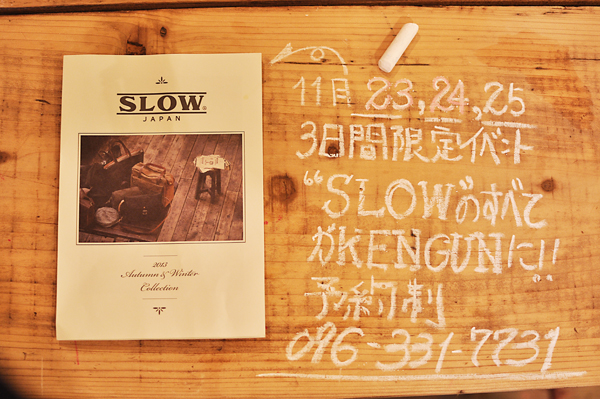 SLOW®
JAPAN
2013
Autumn & Winter
Collection
11月 23, 24, 25
3日間限定イベント
"SLOW"のすべて
がKENGUNに!!
予約制
096-331-7731